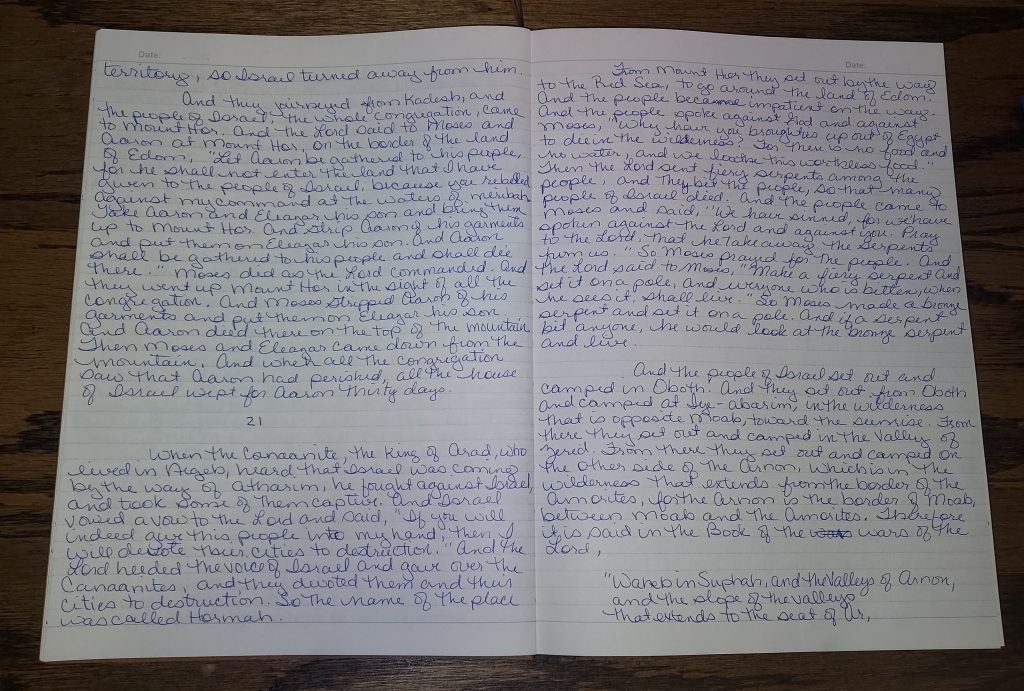 Date:
territory, so Israel turned away from him.
And they journeyed from Kadesh, and
the people of Israel, the whole congregation, came
to Mount Hor. And the Lord said to Moses and
Aaron at Mount Hor, on the border of the land
of Edom, "Let Aaron be gathered to his people,
for he shall not enter the land that I have
given to the people of Israel, because you rebelled
against my command at the waters of meribah.
Take Aaron and Eleazar his son and bring them
up to Mount Hor. And strip Aaron of his garments
and put them on Eleazar his son. And Aaron
shall be gathered to his people and shall die
there." Moses did as the Lord commanded. And
they went up Mount Hor in the sight of all the
congregation. And Moses stripped Aaron of his
garments and put them on Eleazar his son.
And Aaron died there on the top of the mountain.
Then Moses and Eleazar came down from the
mountain. And when all the congregation
saw that Aaron had perished, all the house
of Israel wept for Aaron thirty days.
21
When the Canaanite, the King of Arad, who
lived in Negeb, heard that Israel was coming
by the way of Atharim, he fought against Israel,
and took some of them captive. And Israel
vowed a vow to the Lord and said, "If you will
indeed give this people into my hand, then I
will devote their cities to destruction." And the
Lord heeded the voice of Israel and gave over the
Canaanites, and they devoted them and their
cities to destruction. So the name of the place
was called Hormah.
Date:
From Mount Hor they set out by the way
to the Red Sea, to go around the land of Edom.
And the people became impatient on the way.
And the people spoke against God and against
Moses, "Why have you brought us up out of Egypt
to die in the wilderness? For there is no food and
no water, and we loathe this worthless food."
Then the Lord sent fiery serpents among the
people, and they bit the people, so that many
people of Israel died. And the people came to
Moses and said, "We have sinned, for we have
spoken against the Lord and against you. Pray
to the Lord, that he take away the serpents
from us." So Moses prayed for the people. And
the Lord said to Moses, "Make a fiery serpent and
set it on a pole, and everyone who is bitten, when
he sees it, shall live." So Moses made a bronze
serpent and set it on a pole. And if a serpent
bit anyone, he would look at the bronze serpent
and live.
And the people of Israel set out and
camped in Oboth. And they set out from Oboth
and camped at Iye-abarim, in the wilderness
that is opposite Moab, toward the sunrise. From
there they set out and camped in the Valley of
Zered. From there they set out and camped on
the other side of the Arnon, which is in the
wilderness that extends from the border of the
Amorites, for the Arnon is the border of Moab,
between Moab and the Amorites. Therefore
it is said in the Book of the wars of the
Lord,
"Waheb in Suphah, and the Valleys of Arnon,
and the slope of the valleys
that extends to the seat of Ar,